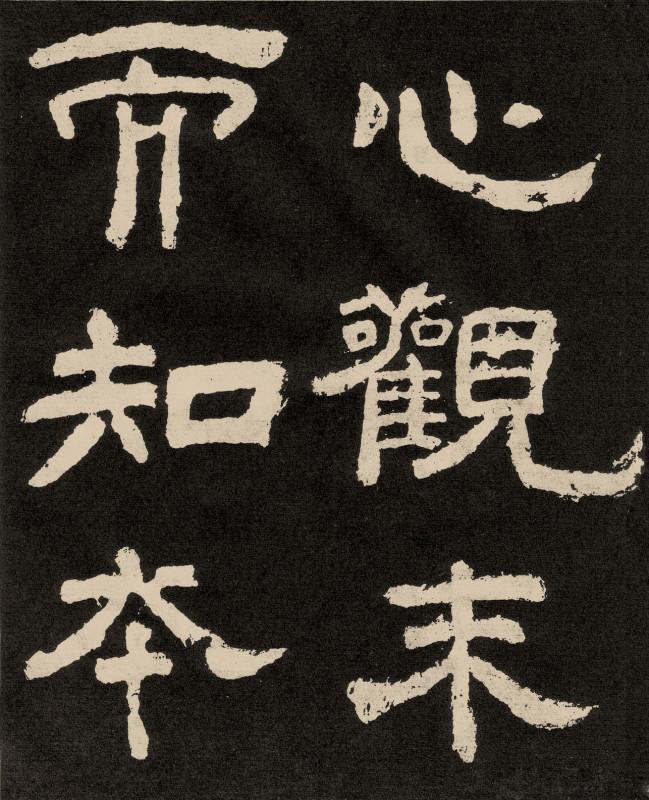 心觀末
而知本